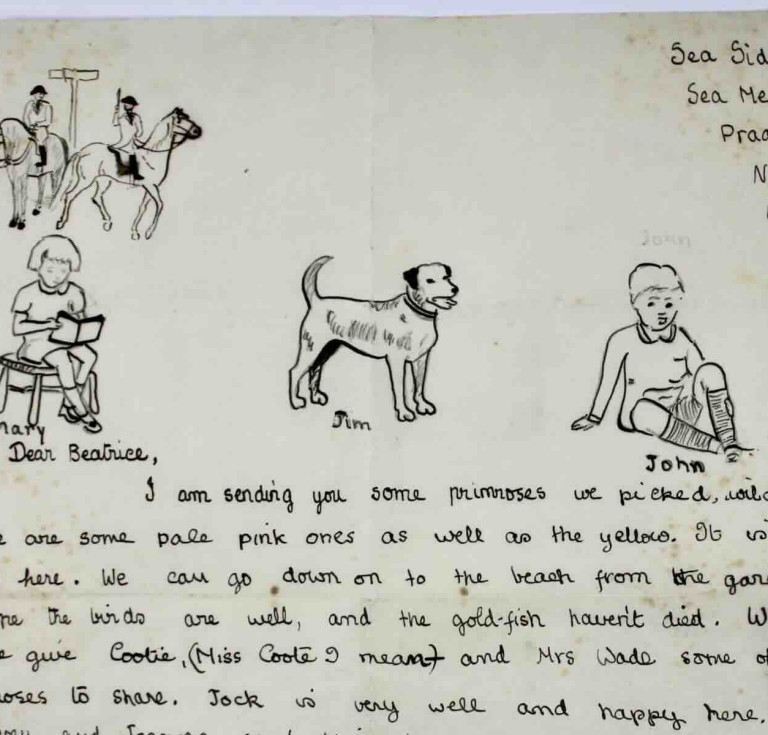 Sea Sid
Sea Me
Praa
N
John
mary
Jim
John
Dear Beatrice,
I am sending you some primroses we picked, wild
e are some pale pink ones as well as the yellow. It is
here. We can go down on to the beach from the gar
pe the birds are well, and the gold-fish haven't died. W
e give Cootie, (Miss Coote I mean) and Mrs Wade some of
oses to share. Jock is very well and happy here.
and